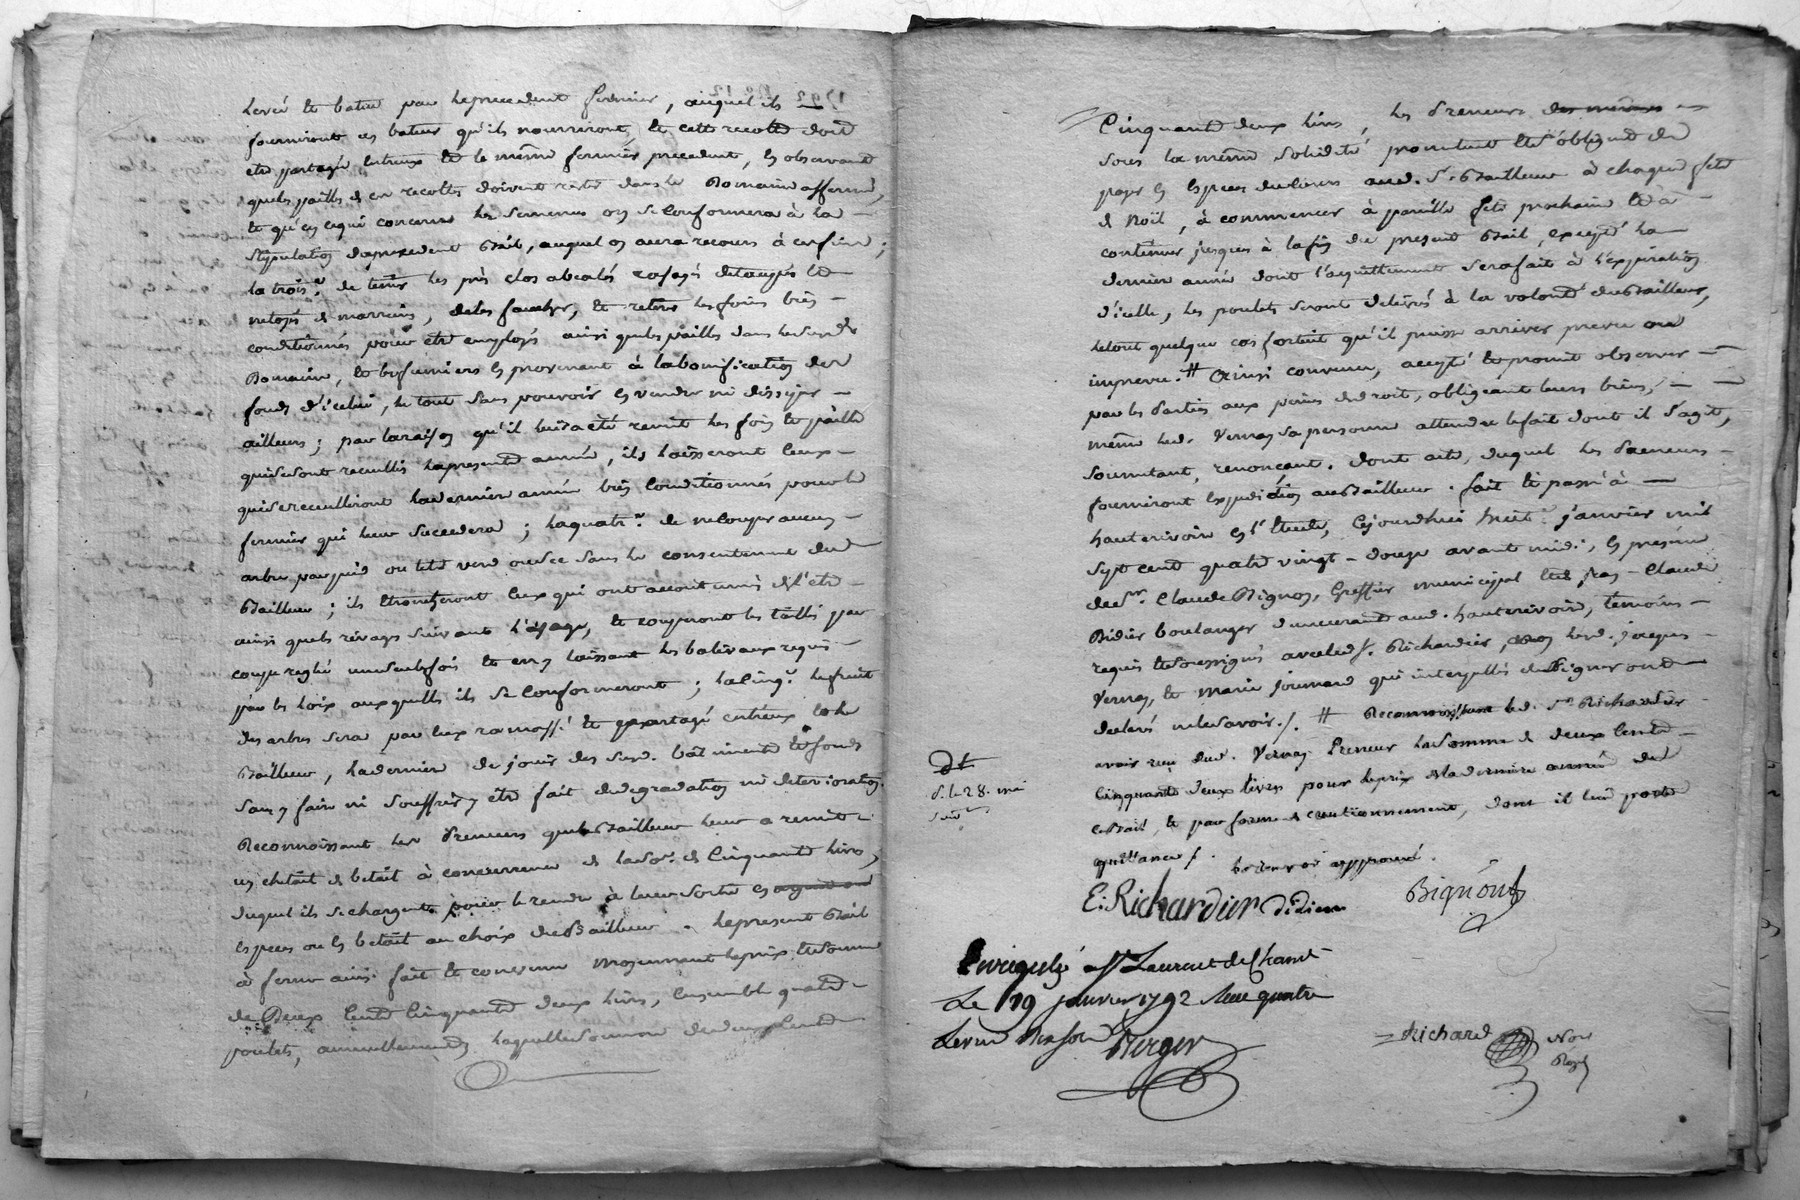 levée et battue par le precedent fermier, auquel ils
fourniront un bateur qu'ils nourriront, et cette recolte doit
etre partagée entreux et le même fermier precedent, en observant
que les pailles de ces recoltes doivent rester dans le Domaine affermé,
et qu'en ce qui concerne les semences on se conformera à la
stipulation du precedent Bail, auquel on aura recours à ces fins ;
la trois.e de tenir les prés clos
netoyés de marrains, de les faucher, et retirer les foins bien
conditionnés pour être employés ainsi que les pailles dans le susd.
Domaine, et les fumiers en provenant à la bonification des
fonds d'icelui, le tout sans pouvoir en vendre ni dissiper
ailleurs ; par la raison qu'il leur a été remit les foin et paille
qui se sont recuillis la presente année, ils laisseront ceux
qui se recuilliront la derniere année bien conditionnés pour le
fermier qui leur succedera ; la quatr.e de ne couper aucun
arbre par pied ou tête verd ou sec sans le consentement du
Bailleur ; ils ceux qui ont accoutumé de l'etre
ainsi que les suivant l'usage, et couperont les taillis par
coupe reglée une seule fois et en y laissant les baliveaux requis
par les loix auxquelles ils se conformeront ; la cinq.e le fruit
des arbres sera par eux ramassé et partagé entreux et le
Bailleur, la derniere de jouir des susd. bâtiments et fonds
sans y faire ni souffrir y être fait de degradation ni deterioration.
Reconnoissant les Preneurs que le Bailleur leur a remit
un cheptail de bétail à concurrence de la so.e de Cinquante livres,
duquel ils se chargent pour le rendre à leur sortie en
especes ou en bétail au choix du Bailleur . le present Bail
à ferme ainsi fait et convenu moyennant le prix et somme
de Deux Cents Cinquante deux livres, ensemble quatre
poulets, annuellement laquelle somme de deux Cents
Cinquante deux livres, les Preneurs
sous la même solidité promettent et s'obligent de
payer en especes de cours aud. Sr. Bailleur à chaque fête
de Noël, à commencer à pareille fête prochaine et à
continuer jusques à la fin du present Bail, excepté la
derniere année dont l'acquittement sera fait à l'expiration
d'icelle, les poulets seront delivrés à la volonté du Bailleur,
le tout quelque cas fortuit qu'il puisse arriver prevu ou
imprevu. # Ainsi convenu, accepté et promit observer
par les Parties aux peines de droit, obligeant leurs biens,
même led. Vernay sa personne attendu le fait dont il s'agit,
soumitant, renonçant. Dont acte, duquel les Preneurs
fourniront expedition au Bailleur. fait et passé à
hauterivoire en l'etude, Cejourdhui huit.e janvier mil
sept cent quatre vingt-douze avant midi, en presence
de Sr. Claude Bignon, Greffier municipal et de fran- Claude
Didier boulanger demeurant aud. hauterivoire, temoins
requis et soussignés avec led. Sr. Richardier, non led. jacques
Vernay, et Marie Joumard qui interpellés de signer ont
declaré ne le savoir./. # Reconnoissant led. Sr Richardier
avoir reçu dud. Vernay Preneur la somme de deux Cents
Cinquante deux livres pour le prix de la derniere année du
cebail, et par forme de cautionnement, dont il leur passe
quittance /. le renvoi approuvé.
dt
d. le 28. mi
E: Richardier Didier
Bignon
Enregistré a St. Laurent de Cham
Le 19 janvier 1792 Reçu quatre
Berger
Richard
Nore
Royal